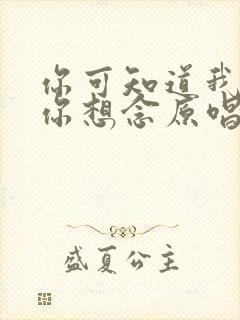 你可知道我
你想念原唱
盛夏公主